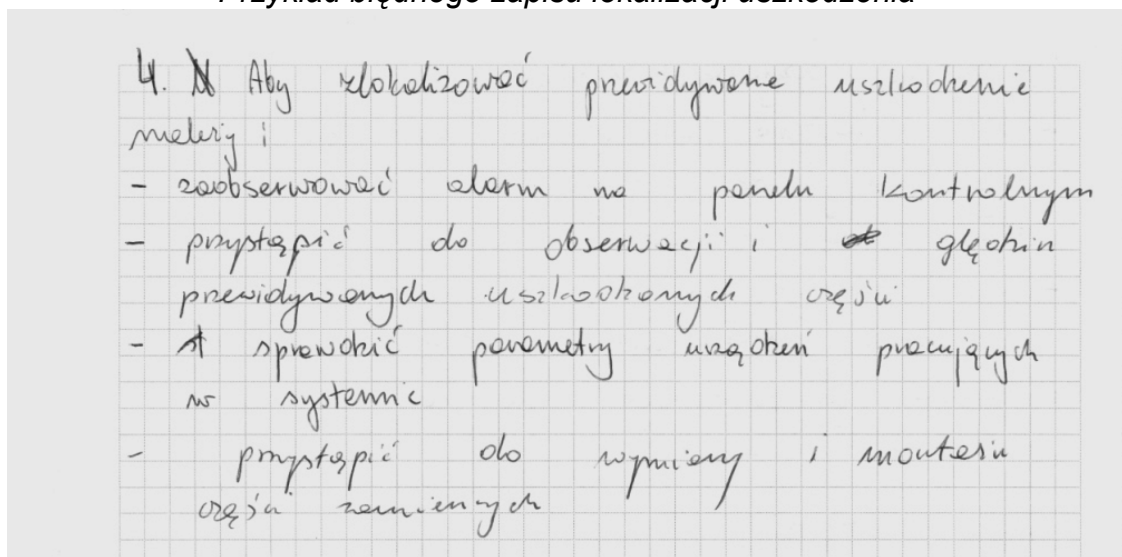 Przykład błędnego zapisu lokalizacji uszkodzenia
4. Aby zlokalizować przewidywane uszkodzenie
należy :
- zaobserwować alarm na panelu kontrolnym
- przystąpić do obserwacji i
przewidywanych uszkodzonych części
- sprawdzić parametry urządzeń pracujących
w systemie
- przystąpić do wymiany i montażu
części zamiennych